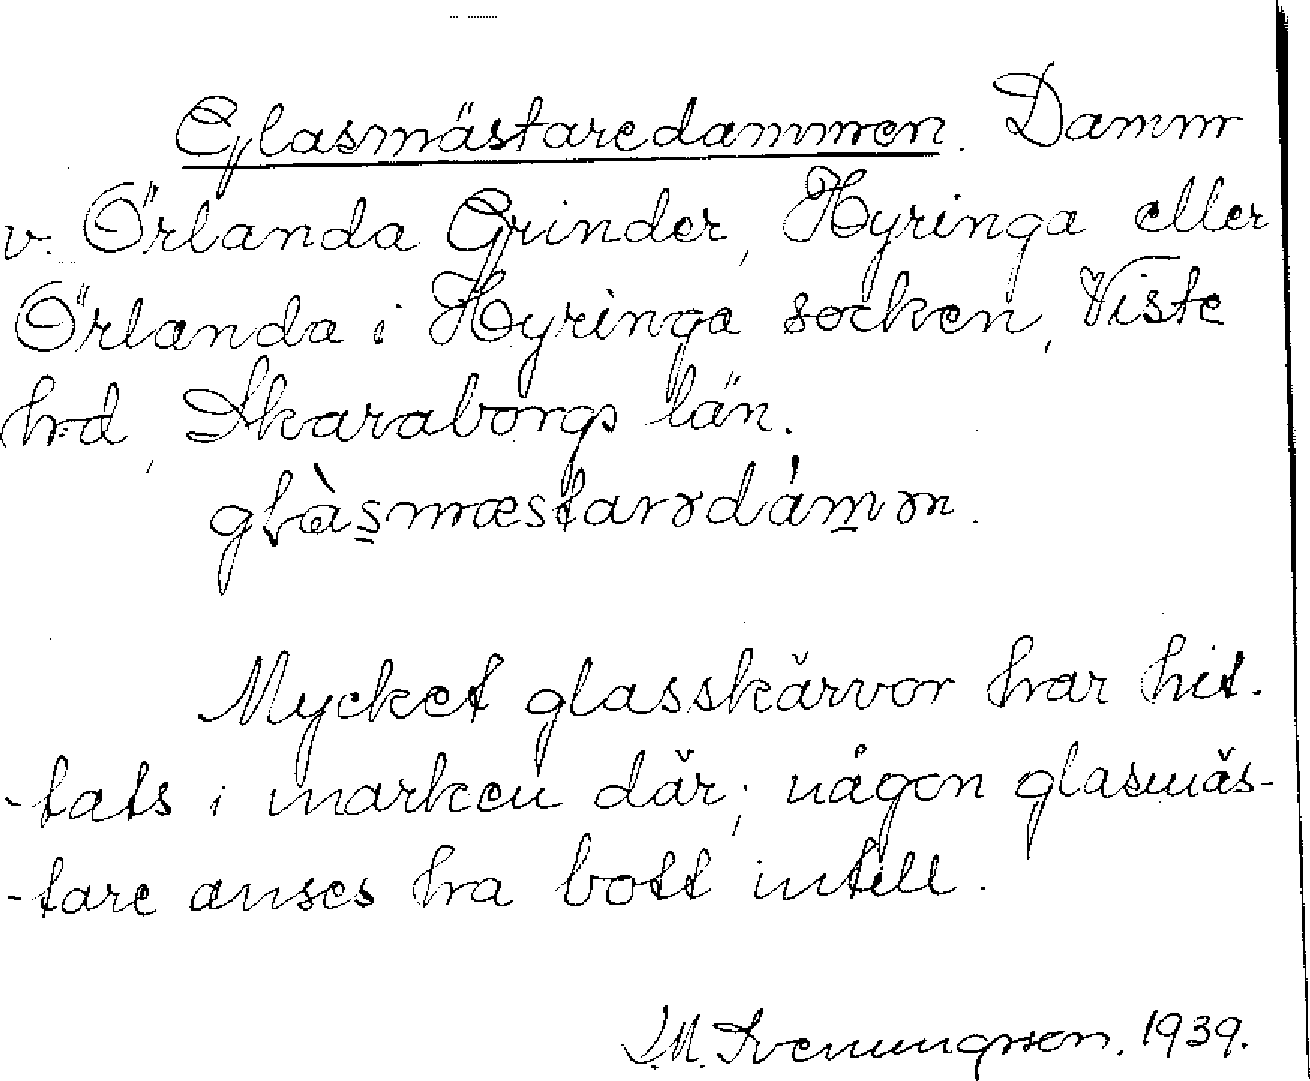 Glasmästaredammen. Damm
v. Örlanda Grinder, Hyringa eller
Örlanda i Hyringa socken, Viste
hrd, Skaraborgs län.
glàsmæstarədámən.
Mycket glasskärvor har hit-
-tats i marken där; någon glasmäs-
-tare anses ha bott intill.
J.M. Svenungsson. 1939.